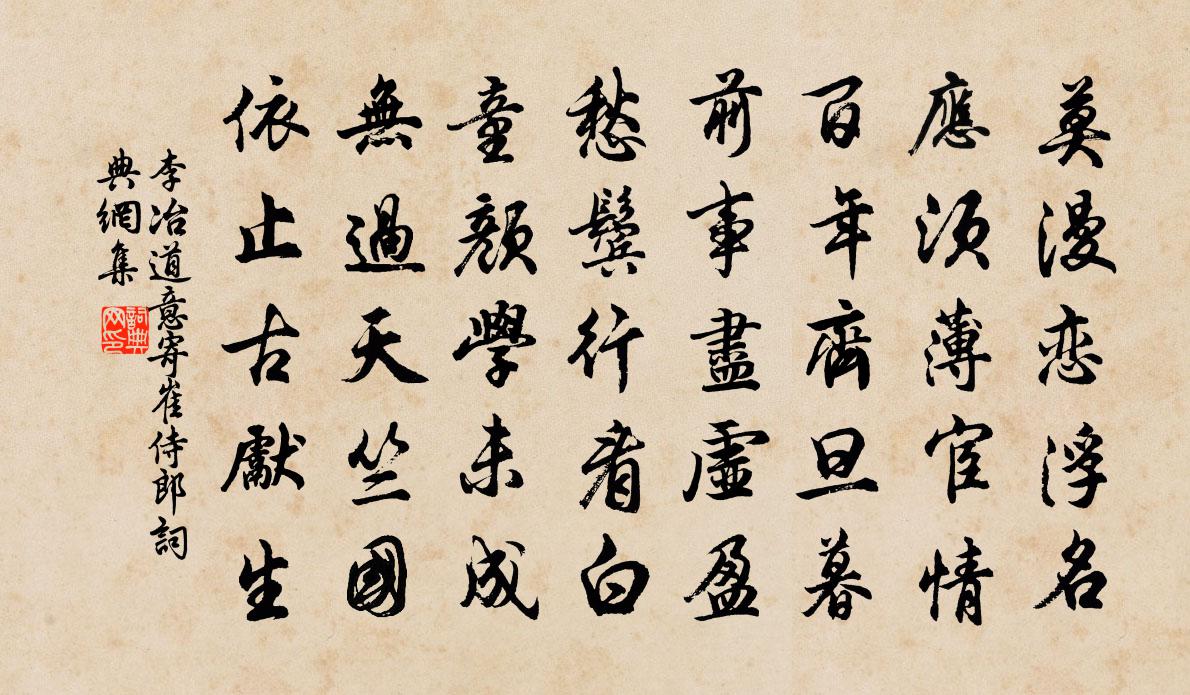 莫漫恋浮名
應須薄宦情
百年齊旦暮
前事盡虛盈
愁鬢行看白
童顏學未成
無過天竺國
依止古獻生
李冶道意寄崔侍郎詞
典網集
詞典
网印